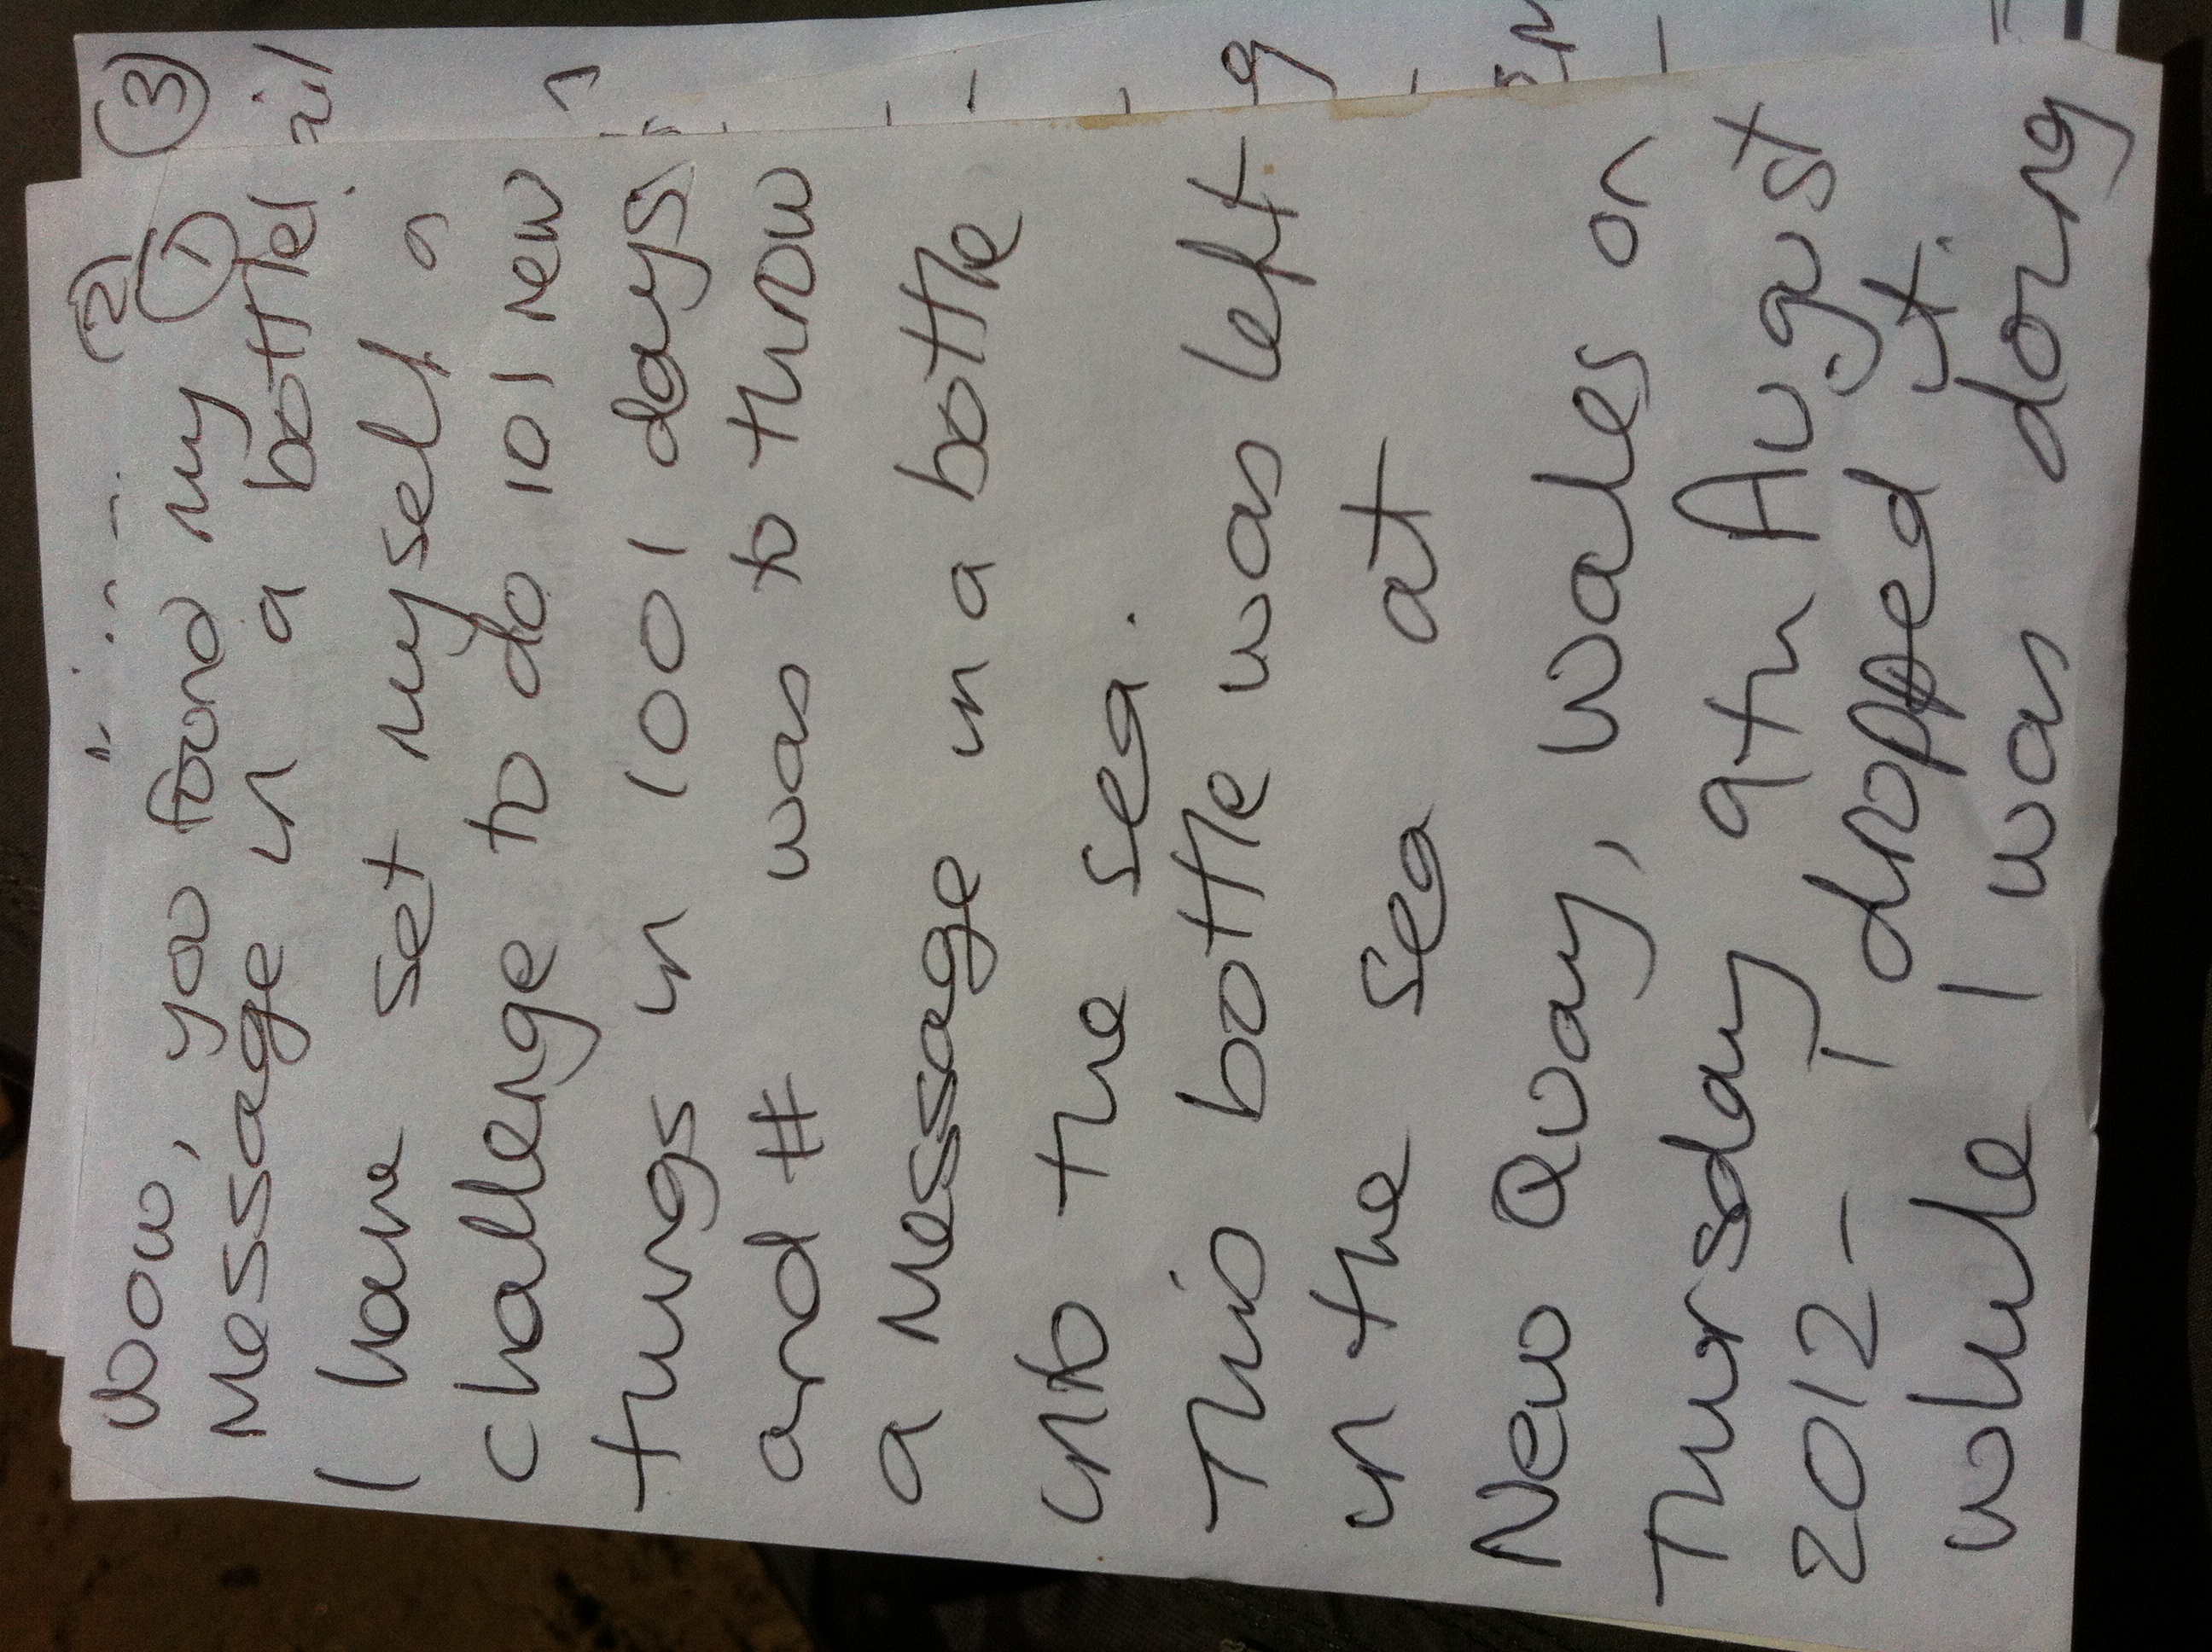 ①
Wow, you found my
message in a bottle!
I have set myself a
challenge to do 101 new
things in 1001 days
and # was to throw
a message in a bottle
into the sea.
This bottle was left
in the sea at
New Quay, Wales on
Thursday 9th August
2012 - I dropped it.
while I was doing
②
③